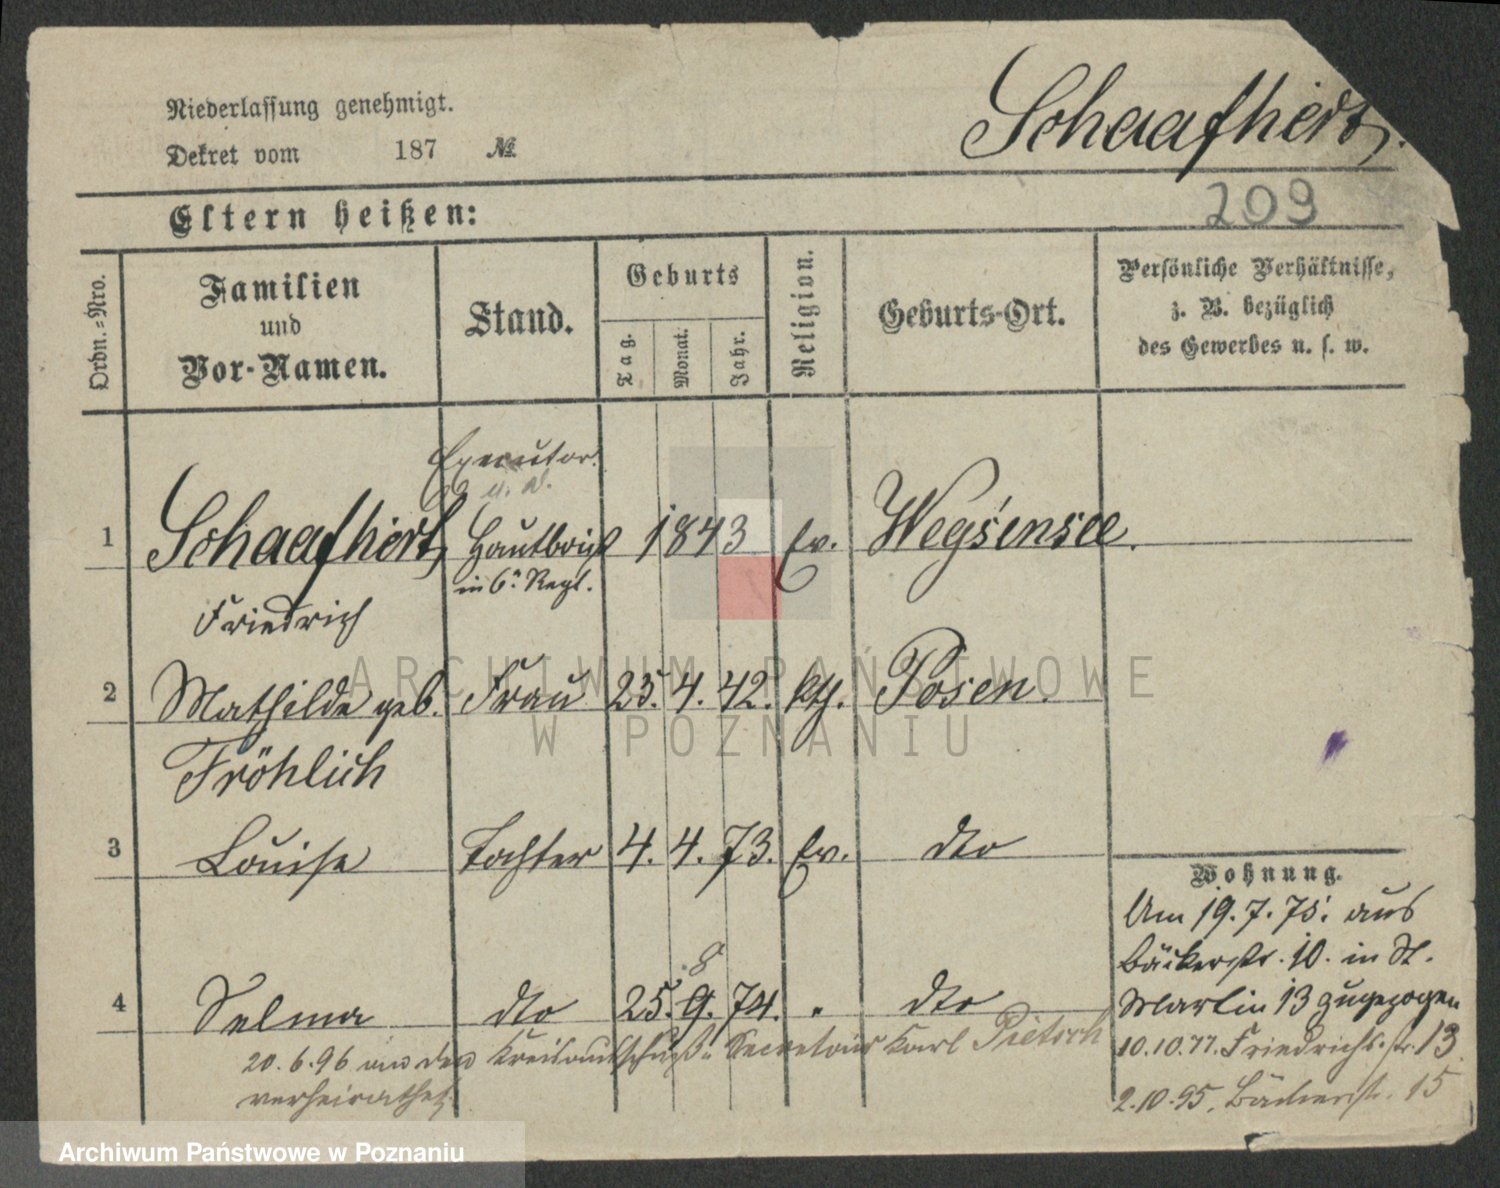 Niederlassung genehmigt.
Dekret vom 187 №
Schaafhirt.
209
Eltern heißen:
Ordn.-Nro.
Familien
und
Vor-Namen.
Stand.
Geburts
Tag.
Monat.
Jahr.
Religion.
Geburts-Ort.
Persönliche Verhältnisse,
z. B. bezüglich
des Gewerbes u. s. w.
Executor.
a. d.
1 Schaafhirt, Hautboist 1843 Ev.
in 6. Regt.
Friedrich
2 Mathilde geb. Frau 25. 4. 42. kth. Posen.
Fröhlich
3 Louise Tochter 4. 4. 73. Ev. dto
8
4 Selma dto 25. 9. 74. " dto
20.6.96 an den Kreisausschuß- Secretair Karl Pietsch
verheirathet.
Wohnung.
Am 19.7.75. aus
Bäckerstr. 10. in St.
Martin 13 zugezogen
10.10.77. Friedrichsstr. 13
2.10.95. Bäckerstr. 15
ARCHIWUM PAŃSTWOWE
W POZNANIU
Archiwum Państwowe w Poznaniu